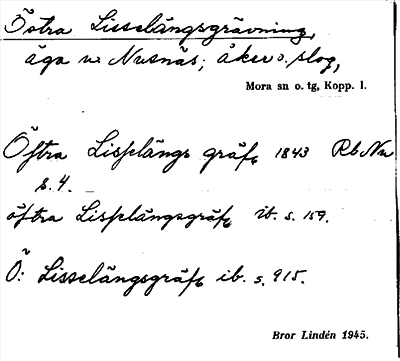 Östra Lisselängsgrävning,
äga v. Nusnäs; åker o. slog,
Mora sn o. tg, Kopp. l.
Öftra Lisslängs gräf 1843 Rb Nu
s. 4.
öftra Lisslängsgräf ib. s. 159.
Ö: Lisselängsgräf ib. s. 915.
Bror Lindén 1945.